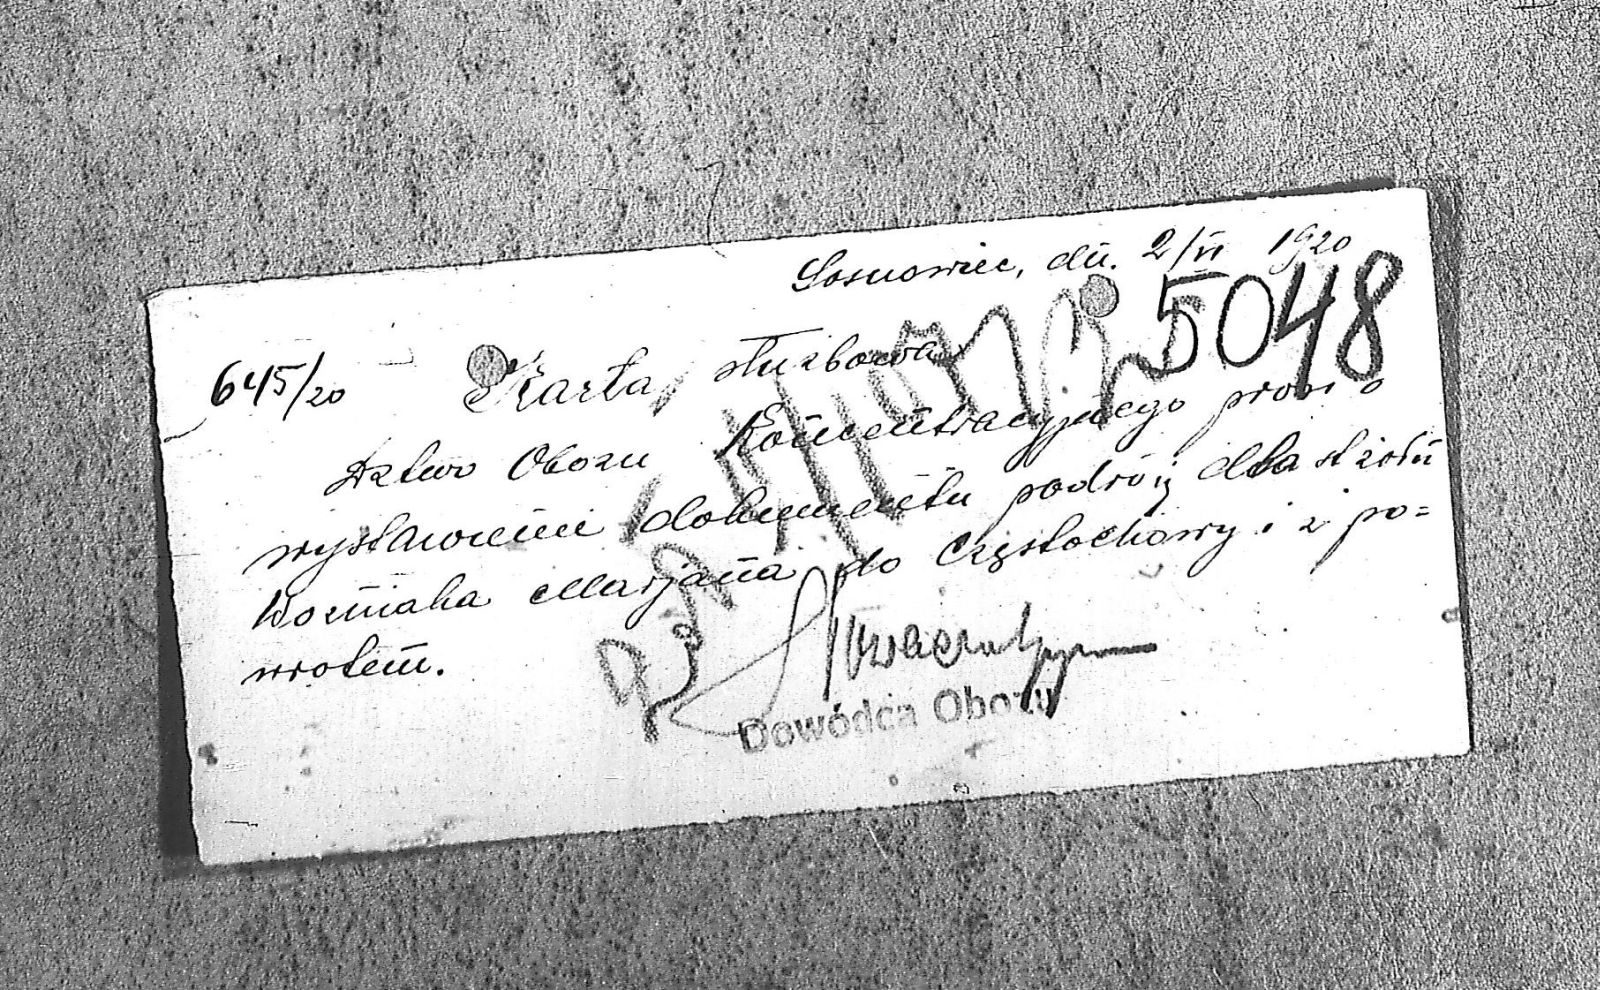 Sosnowiec, dn. 2/VI 1920
5048
645/20 Karta służbowa
Dztwo Obozu Koncentracyjnego prosi o
wystawienie dokumentu podróży dla st. żołn.
Woźniaka Marjana do Częstochowy i z po=
wrotem.
Dowódca Obozu